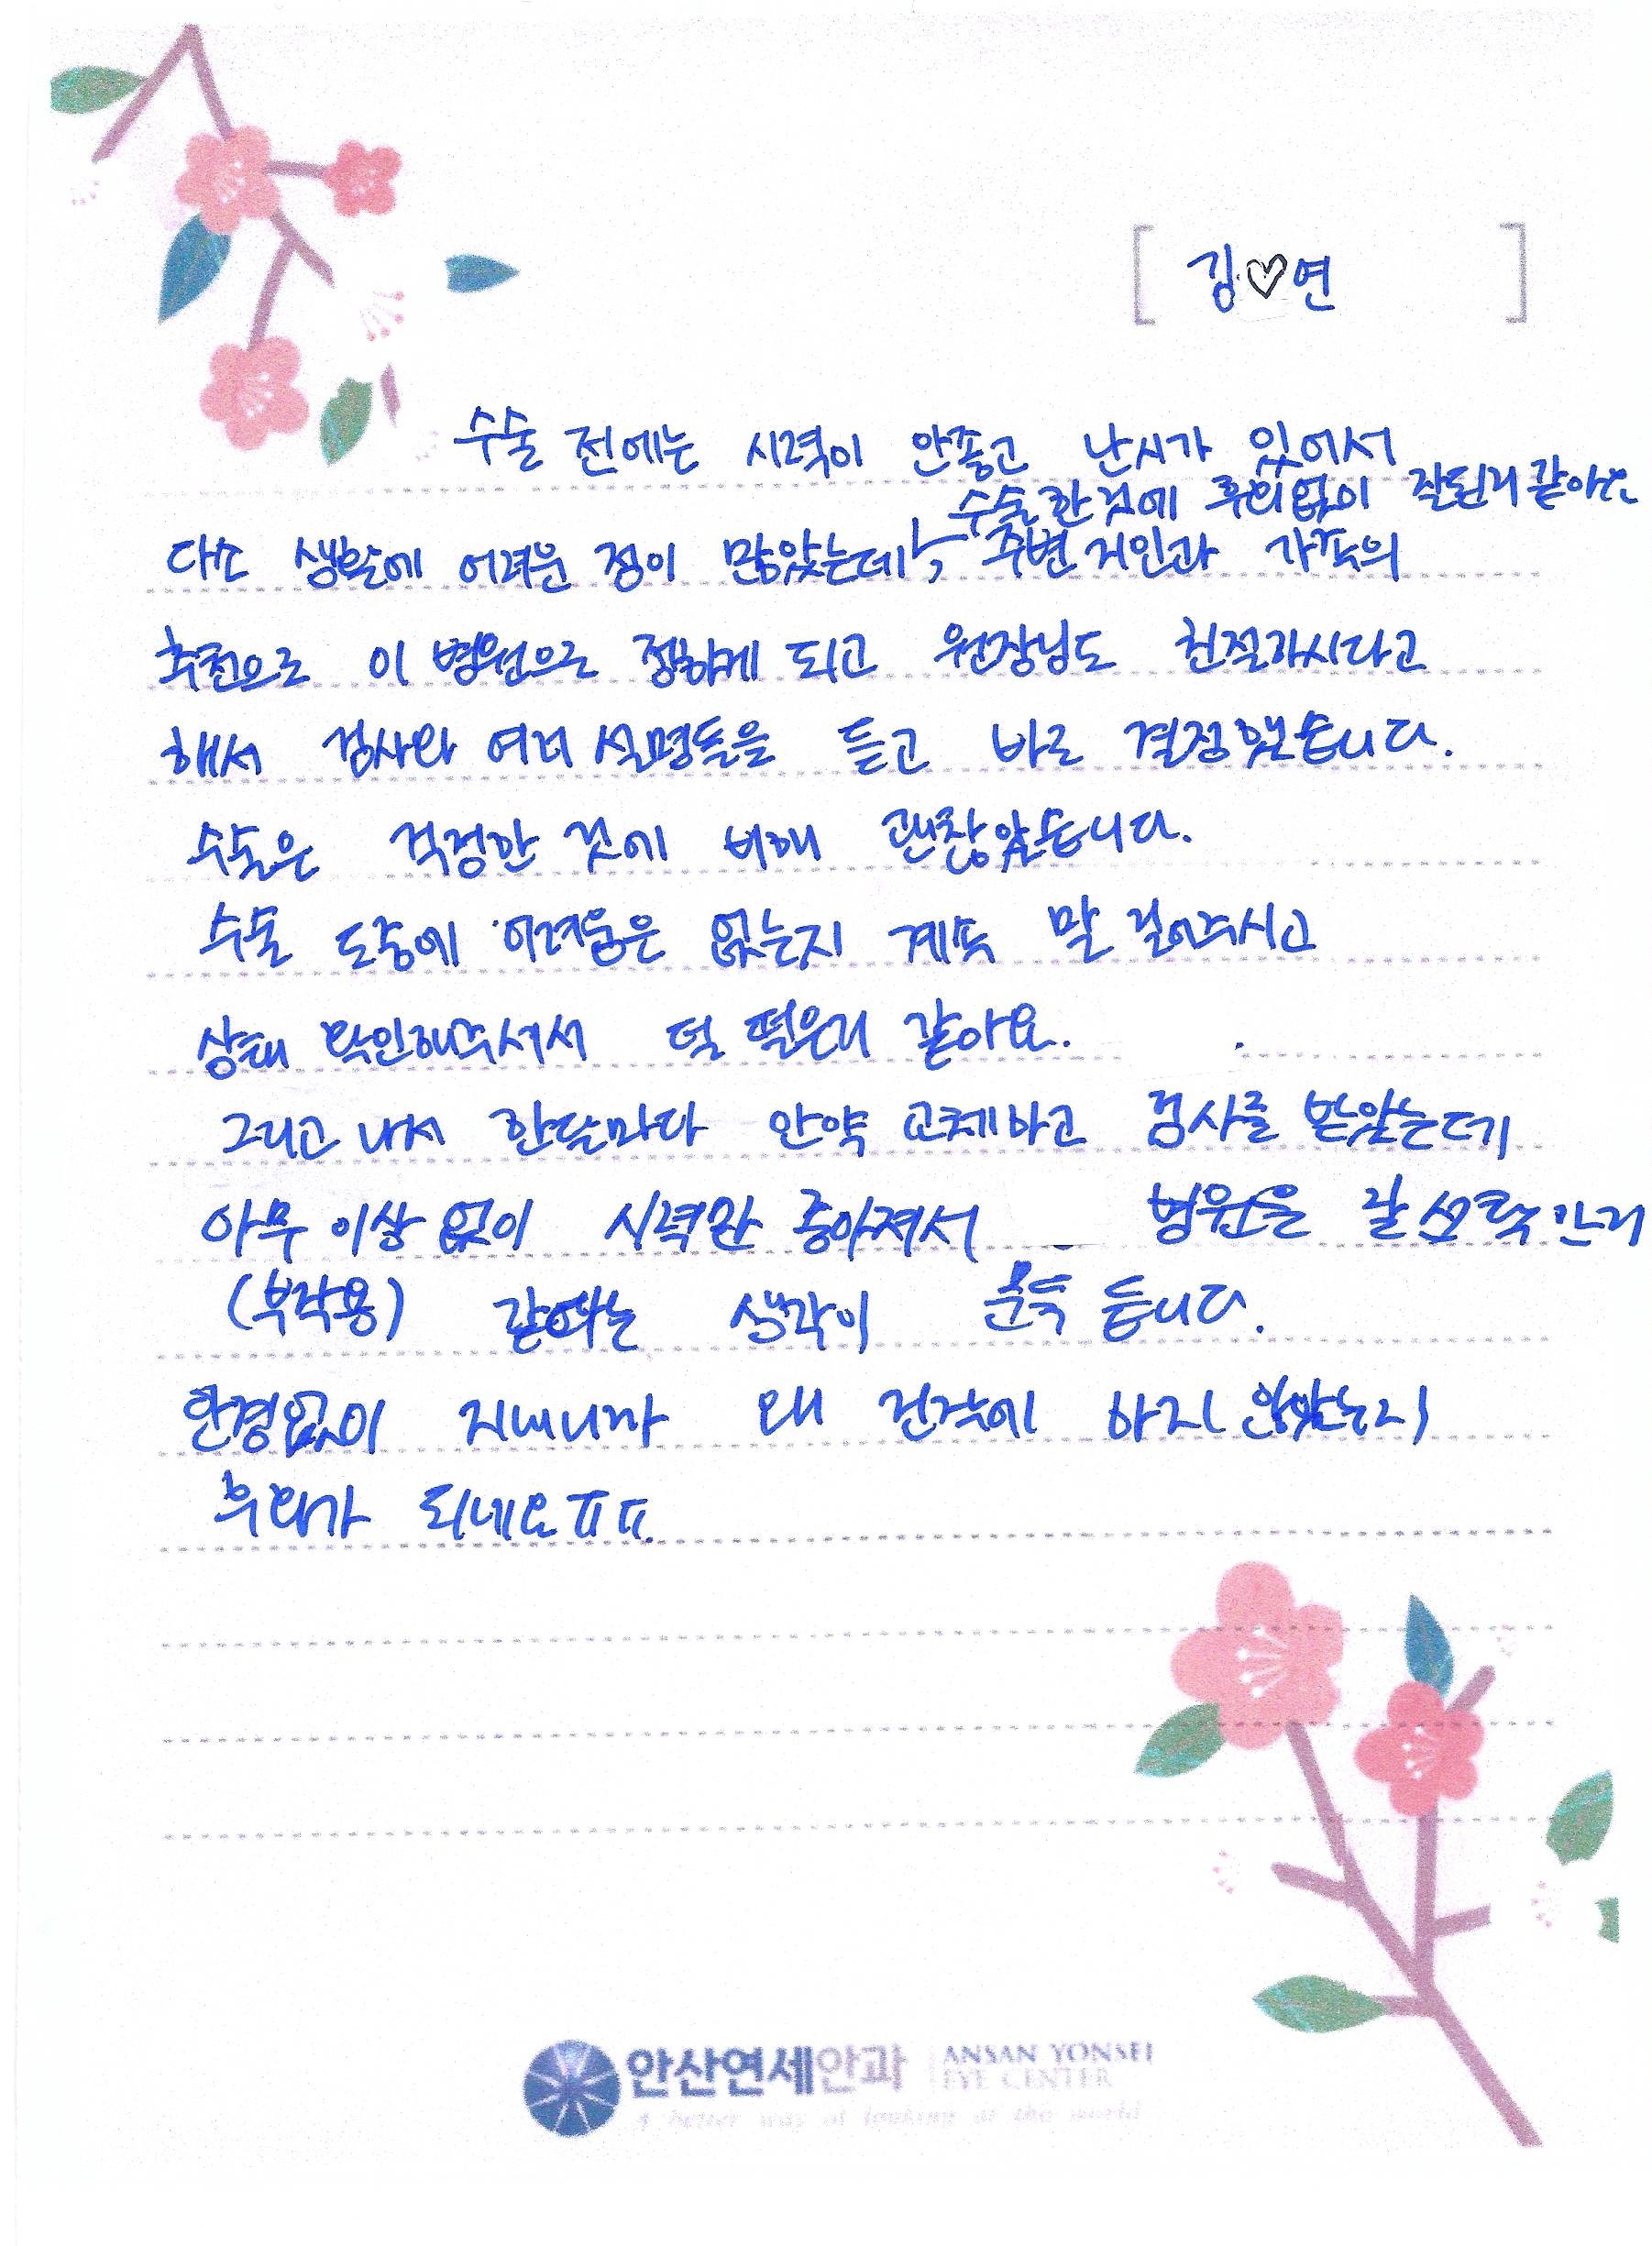 [ 김♡연 ]
수술 전에는 시력이 안좋고 난시가 있어서
수술한 것에 후회없이 잘된거 같아요
다소 생활에 어려운 점이 많았는데, 주변 지인과 가족의
추천으로 이 병원으로 정하게 되고 원장님도 친절하시다고
해서 검사와 여러 설명들을 듣고 바로 결정했습니다.
수술은 걱정한 것에 비해 괜찮았습니다.
수술 도중에 어려움은 없는지 계속 말 걸어주시고
상태 확인해주셔서 덜 떨은거 같아요.
그리고 나서 한달마다 안약 교체하고 검사를 받았는데
아무 이상 없이 시력만 좋아져서 병원을 잘 선택한거
(부작용) 같다는 생각이 문득 듭니다.
안경없이 지내니까 왜 진작에 하지 않았는지
후회가 되네요 ㅠㅠ
안산연세안과 ANSAN YONSEI
EYE CENTER
A better way of looking at the world